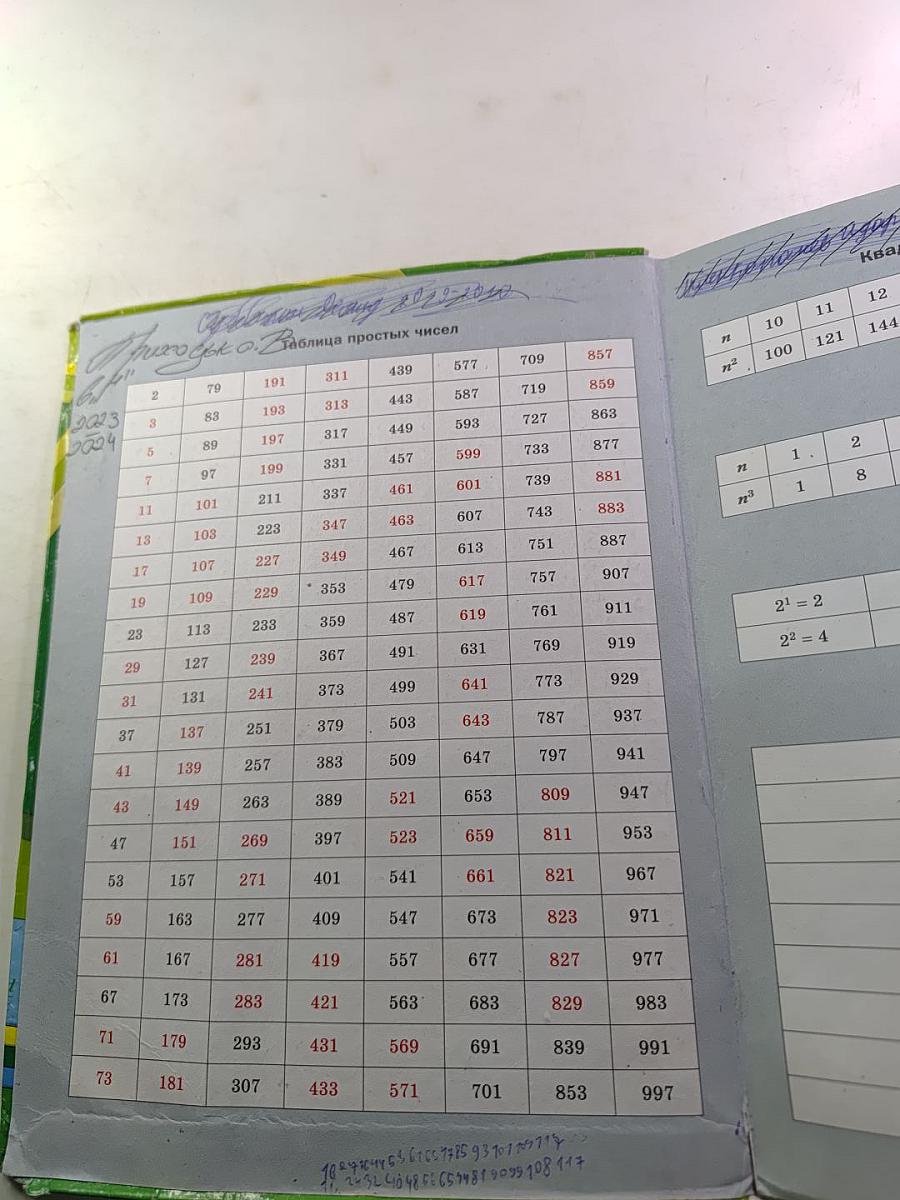 Таблица простых чисел
6 "А"
2023
2024
2 79 191 311 439 577 709 857
3 83 193 313 443 587 719 859
5 89 197 317 449 593 727 863
7 97 199 331 457 599 733 877
11 101 211 337 461 601 739 881
13 103 223 347 463 607 743 883
17 107 227 349 467 613 751 887
19 109 229 353 479 617 757 907
23 113 233 359 487 619 761 911
29 127 239 367 491 631 769 919
31 131 241 373 499 641 773 929
37 137 251 379 503 643 787 937
41 139 257 383 509 647 797 941
43 149 263 389 521 653 809 947
47 151 269 397 523 659 811 953
53 157 271 401 541 661 821 967
59 163 277 409 547 673 823 971
61 167 281 419 557 677 827 977
67 173 283 421 563 683 829 983
71 179 293 431 569 691 839 991
73 181 307 433 571 701 853 997
n 10 11 12
n² 100 121 144
n 1 2
n³ 1 8
2¹ = 2
2² = 4